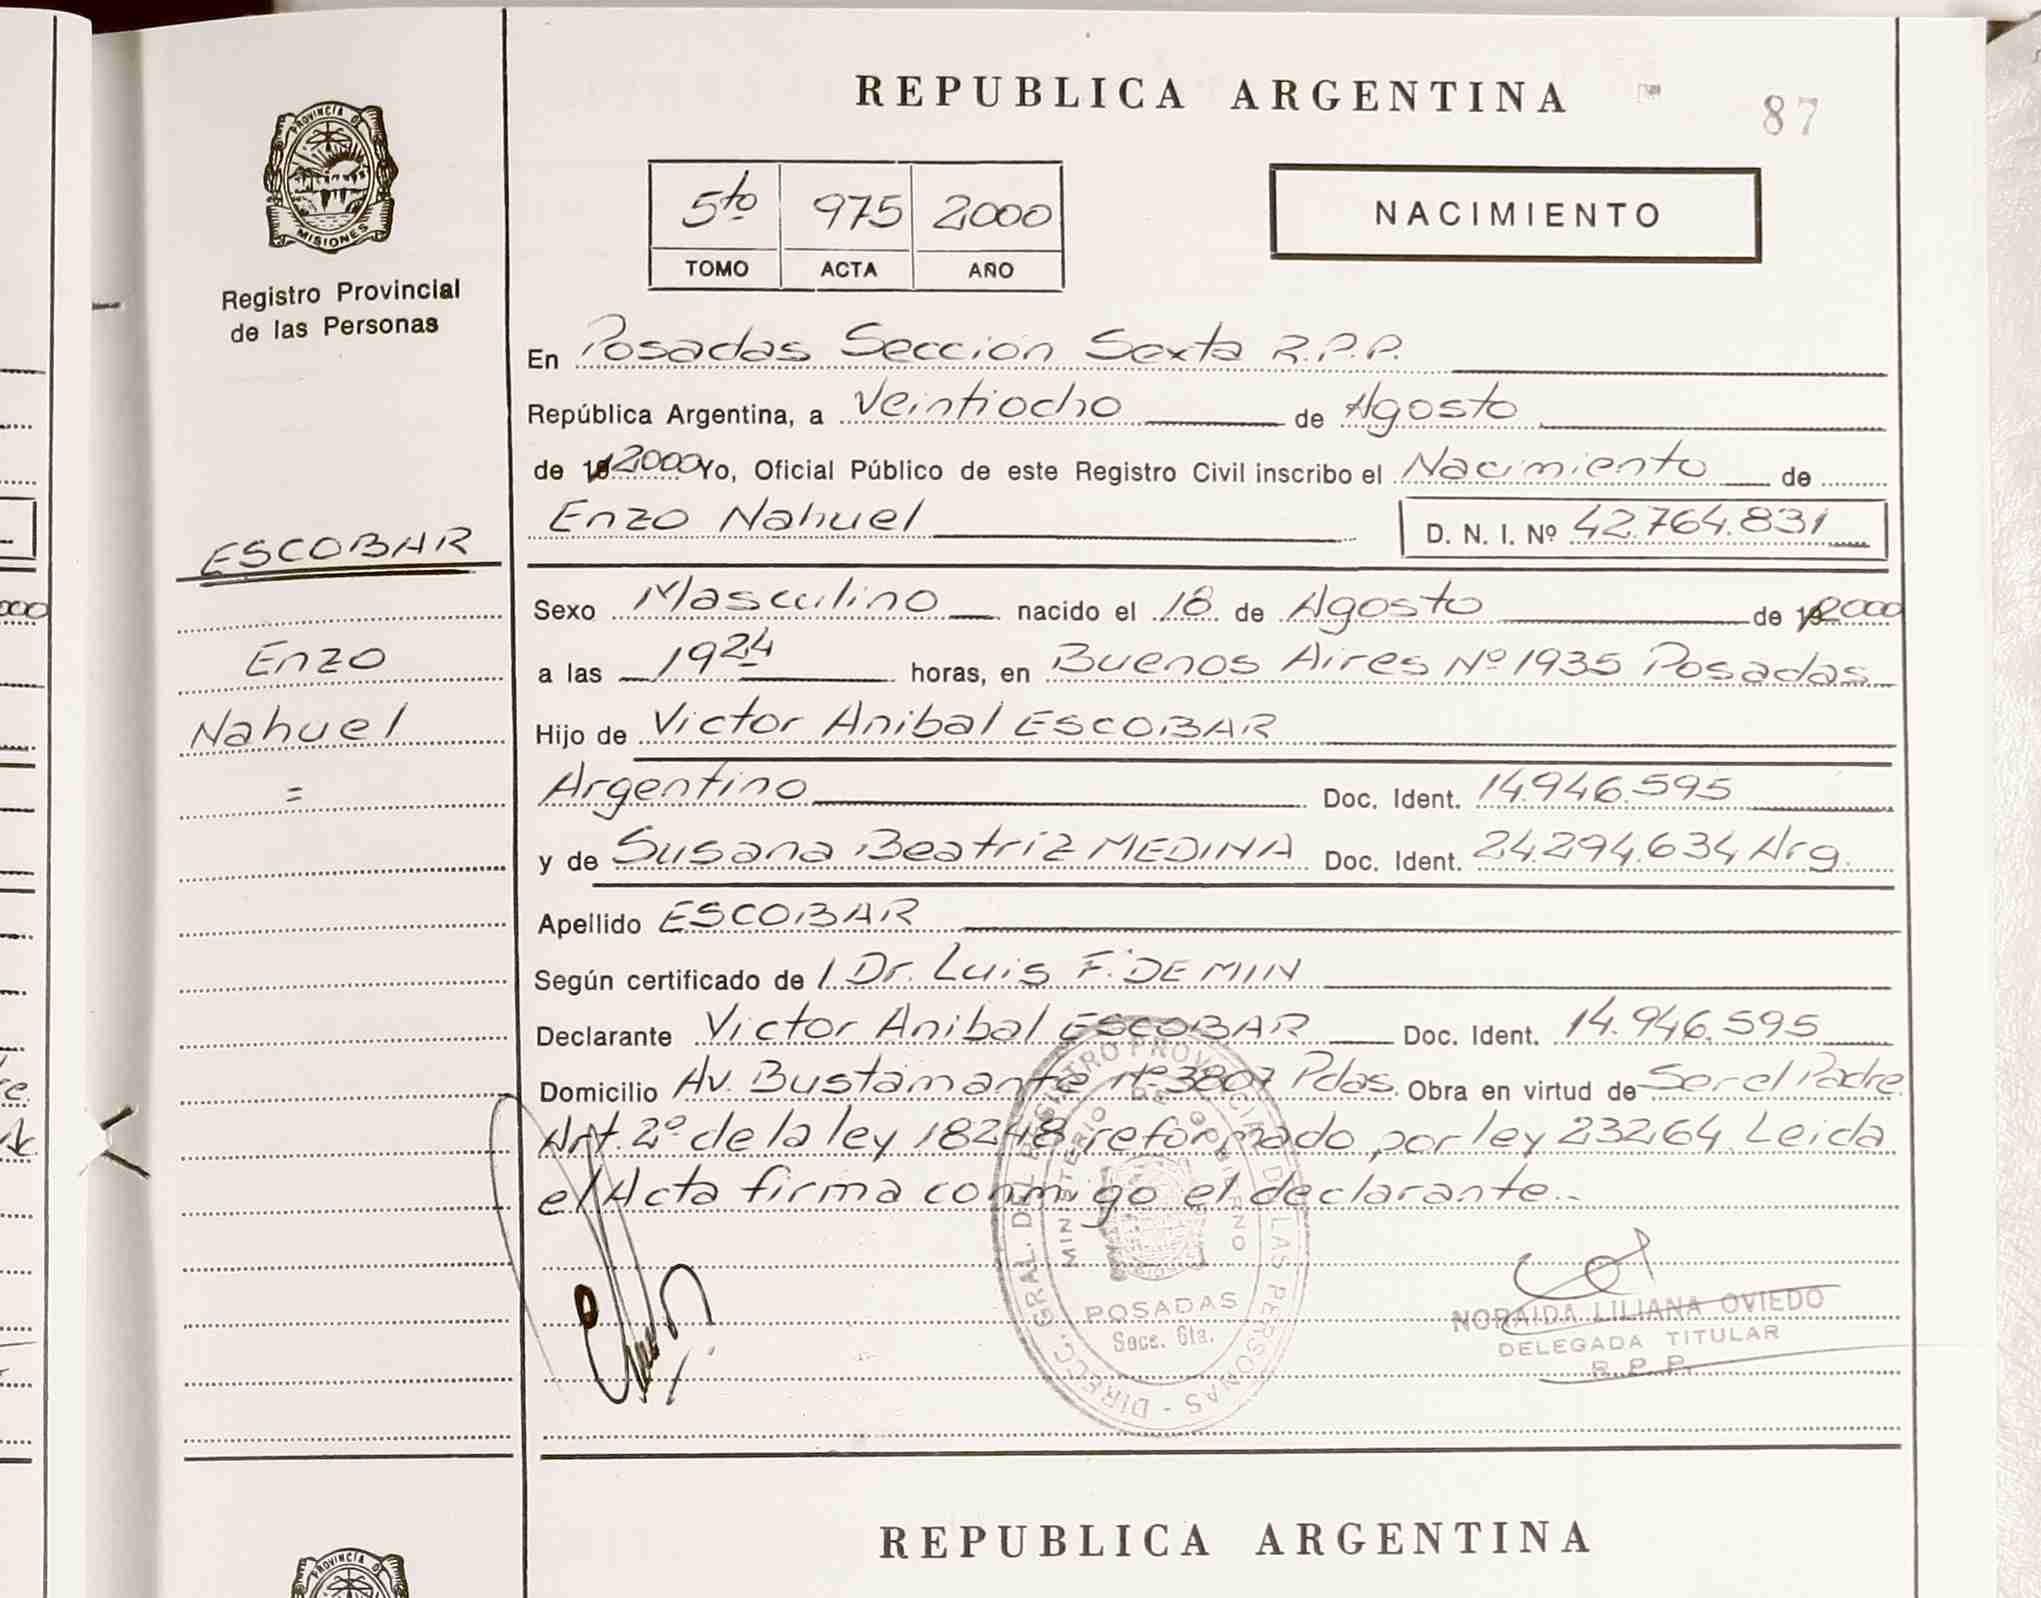 REPUBLICA ARGENTINA
87
PROVINCIA DE
MISIONES
Registro Provincial
de las Personas
5to 975 2000
TOMO ACTA AÑO
NACIMIENTO
En Posadas Sección Sexta R.P.P.
República Argentina, a Veintiocho de Agosto
de 2000 Yo, Oficial Público de este Registro Civil inscribo el Nacimiento de
Enzo Nahuel D. N. I. Nº 42.764.831
ESCOBAR
Enzo
Nahuel
=
Sexo Masculino nacido el 18 de Agosto de 2000
a las 19 24 horas, en Buenos Aires Nº 1935 Posadas
Hijo de Victor Anibal ESCOBAR
Argentino Doc. Ident. 14.946.595
y de Susana Beatriz MEDINA Doc. Ident. 24.294.634 Arg.
Apellido ESCOBAR
Según certificado de Dr. Luis F. DE MIN
Declarante Victor Anibal ESCOBAR Doc. Ident. 14.946.595
Domicilio Av. Bustamante Nº 3807 Pdas. Obra en virtud de Ser el Padre
Art. 2º de la ley 18248 reformado por ley 23264. Leida
el Acta firma conmigo el declarante.
DIRECC. GRAL. DEL REGISTRO PROVINCIAL DE LAS PERSONAS -
MINISTERIO DE GOBIERNO
POSADAS
Secc. 6ta.
NORAIDA LILIANA OVIEDO
DELEGADA TITULAR
R.P.P.
REPUBLICA ARGENTINA
PROVINCIA DE